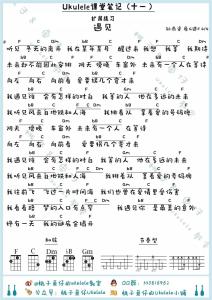 Ukulele课堂笔记（十一）
扩展练习
遇见
听见 冬天的离开 我在某年某月 醒过来 我想 我等 我期待
未来却不能因此安排 阴天 傍晚 车窗外 未来有一个人在等待
向左 向右 向前看 爱要拐几个弯才来
我遇见谁 会有怎样的对白 我等的人 他在多远的未来
我听见风来自地铁和人海 我排着队 拿着爱的号码牌
阴天 傍晚 车窗外 未来有一个人在等待
向左 向右 向前看 爱要拐几个弯才来
我遇见谁 会有怎样的对白 我等的人 他在多远的未来
我听见风来自地铁和人海 我排着队 拿着爱的号码牌
我往前飞 飞过一片时间海 我们也曾在爱情里受伤害
我看着路 梦的入口有点窄 我遇见你 是最美的意外
终有一天 我的谜底会揭开
和弦
节奏型
F C Dm bB Gm
@桃子鱼仔的ukulele教室
公众号：桃子鱼仔Ukulele
桃子鱼仔Ukulele小铺